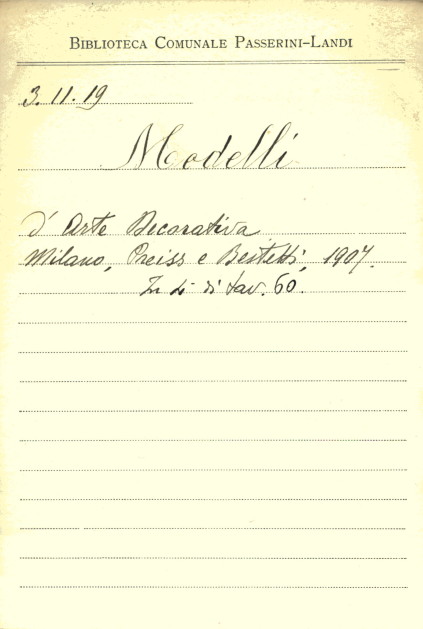 BIBLIOTECA COMUNALE PASSERINI-LANDI
3.11.19
Modelli
d'Arte Decorativa
Milano, Preiss e Bestetti, 1907.
In 4° di tav. 60.